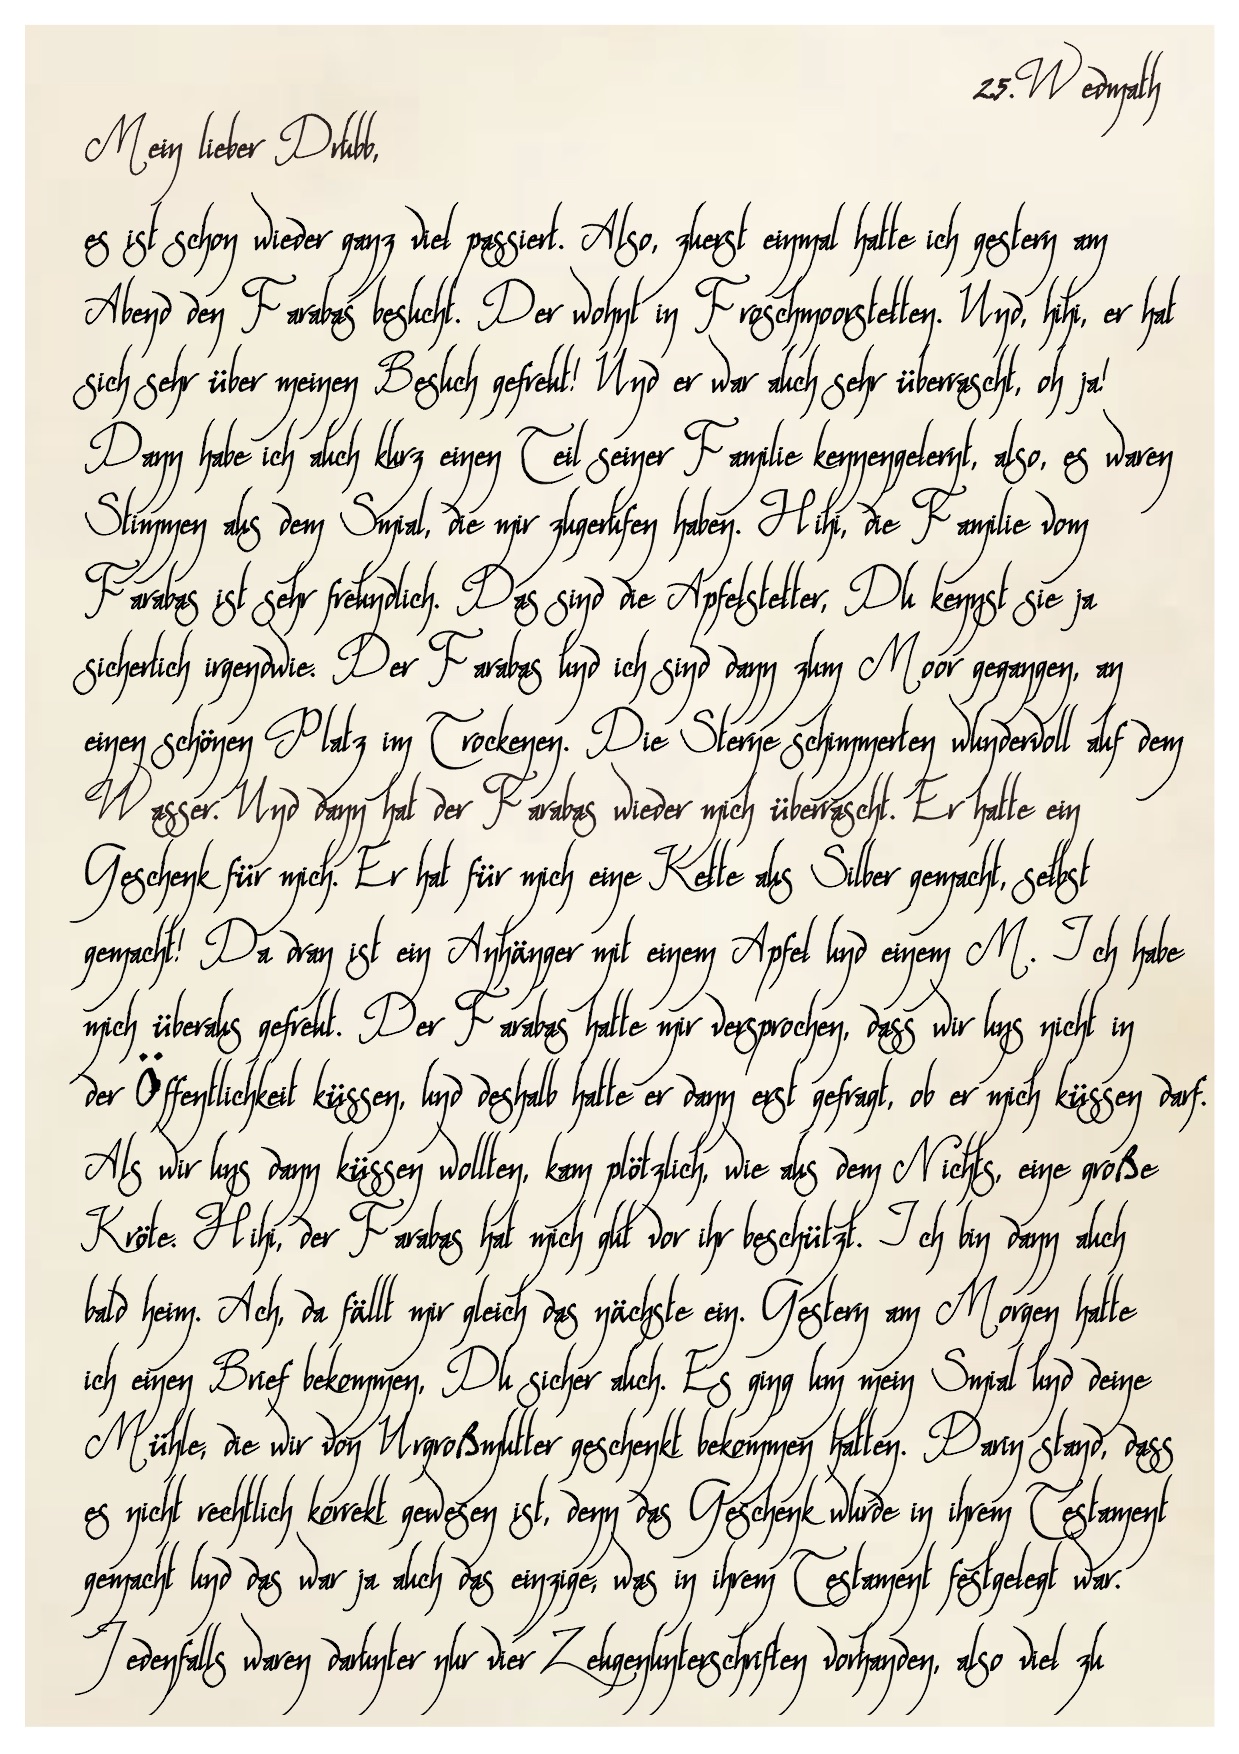 25. Wedmath
Mein lieber Drubb,
es ist schon wieder ganz viel passiert. Also, zuerst einmal hatte ich gestern am
Abend den Farabas besucht. Der wohnt in Froschmoorstetten. Und, hihi, er hat
sich sehr über meinen Besuch gefreut! Und er war auch sehr überrascht, oh ja!
Dann habe ich auch kurz einen Teil seiner Familie kennengelernt, also, es waren
Stimmen aus dem Smial, die mir zugerufen haben. Hihi, die Familie vom
Farabas ist sehr freundlich. Das sind die Apfelstetter, Du kennst sie ja
sicherlich irgendwie. Der Farabas und ich sind dann zum Moor gegangen, an
einen schönen Platz im Trockenen. Die Sterne schimmerten wundervoll auf dem
Wasser. Und dann hat der Farabas wieder mich überrascht. Er hatte ein
Geschenk für mich. Er hat für mich eine Kette aus Silber gemacht, selbst
gemacht! Da dran ist ein Anhänger mit einem Apfel und einem M. Ich habe
mich überaus gefreut. Der Farabas hatte mir versprochen, dass wir uns nicht in
der Öffentlichkeit küssen, und deshalb hatte er dann erst gefragt, ob er mich küssen darf.
Als wir uns dann küssen wollten, kam plötzlich, wie aus dem Nichts, eine große
Kröte. Hihi, der Farabas hat mich gut vor ihr beschützt. Ich bin dann auch
bald heim. Ach, da fällt mir gleich das nächste ein. Gestern am Morgen hatte
ich einen Brief bekommen, Du sicher auch. Es ging um mein Smial und deine
Mühle, die wir von Urgroßmutter geschenkt bekommen hatten. Darin stand, dass
es nicht rechtlich korrekt gewesen ist, denn das Geschenk wurde in ihrem Testament
gemacht und das war ja auch das einzige, was in ihrem Testament festgelegt war.
Jedenfalls waren darunter nur vier Zeugenunterschriften vorhanden, also viel zu